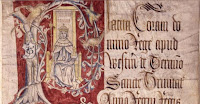 Placita Coram do
mino Rege apud
Westm de Termio
Sancte Trinitat
Anno Regni Regis